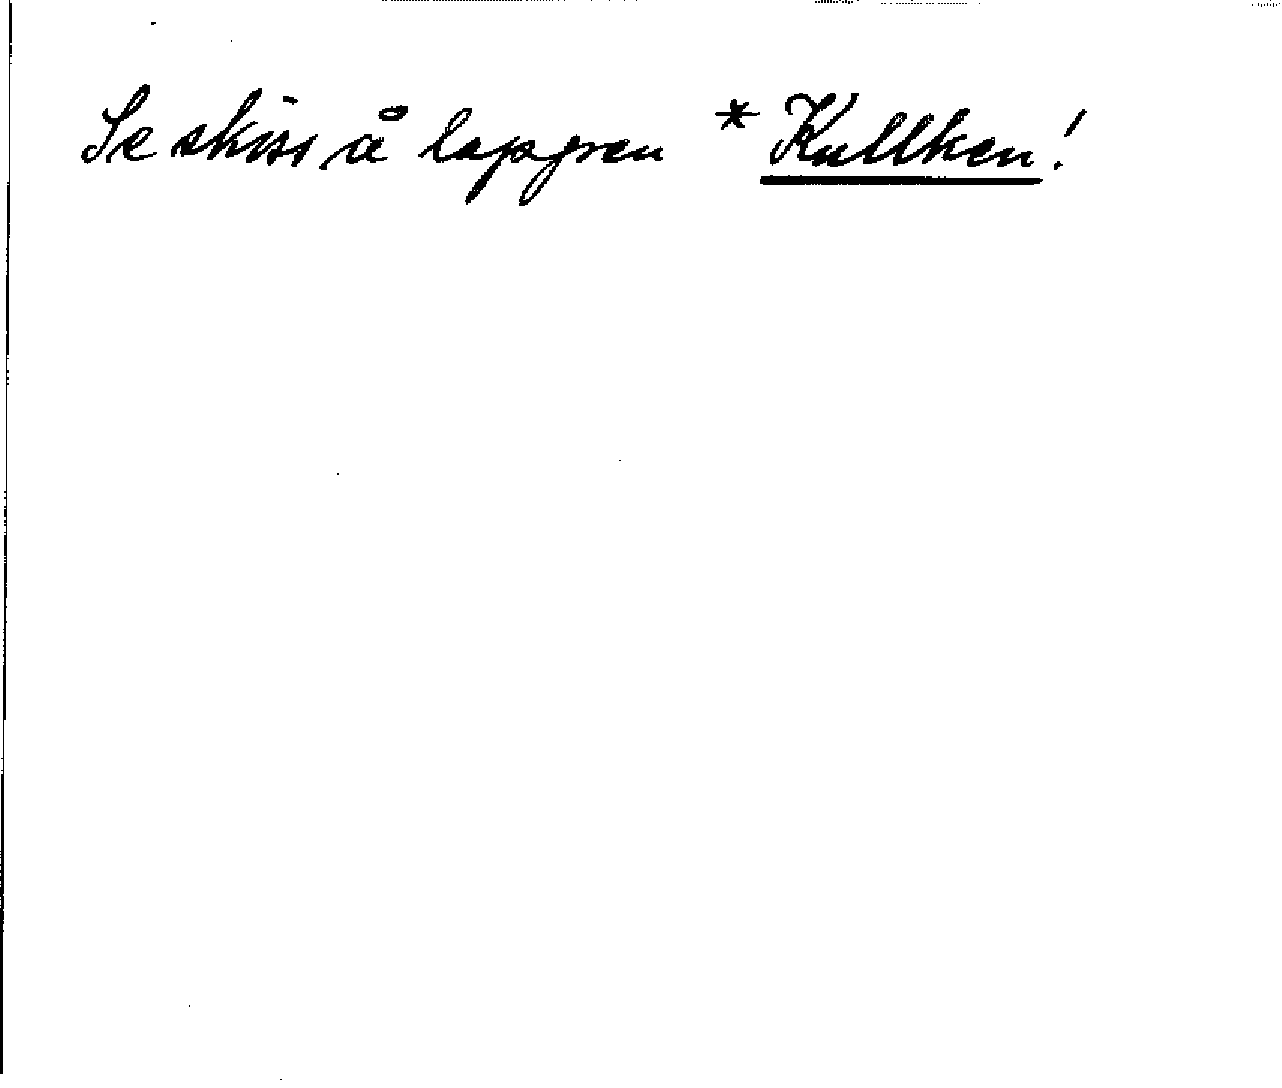 Se skiss å lappen * Kullken!